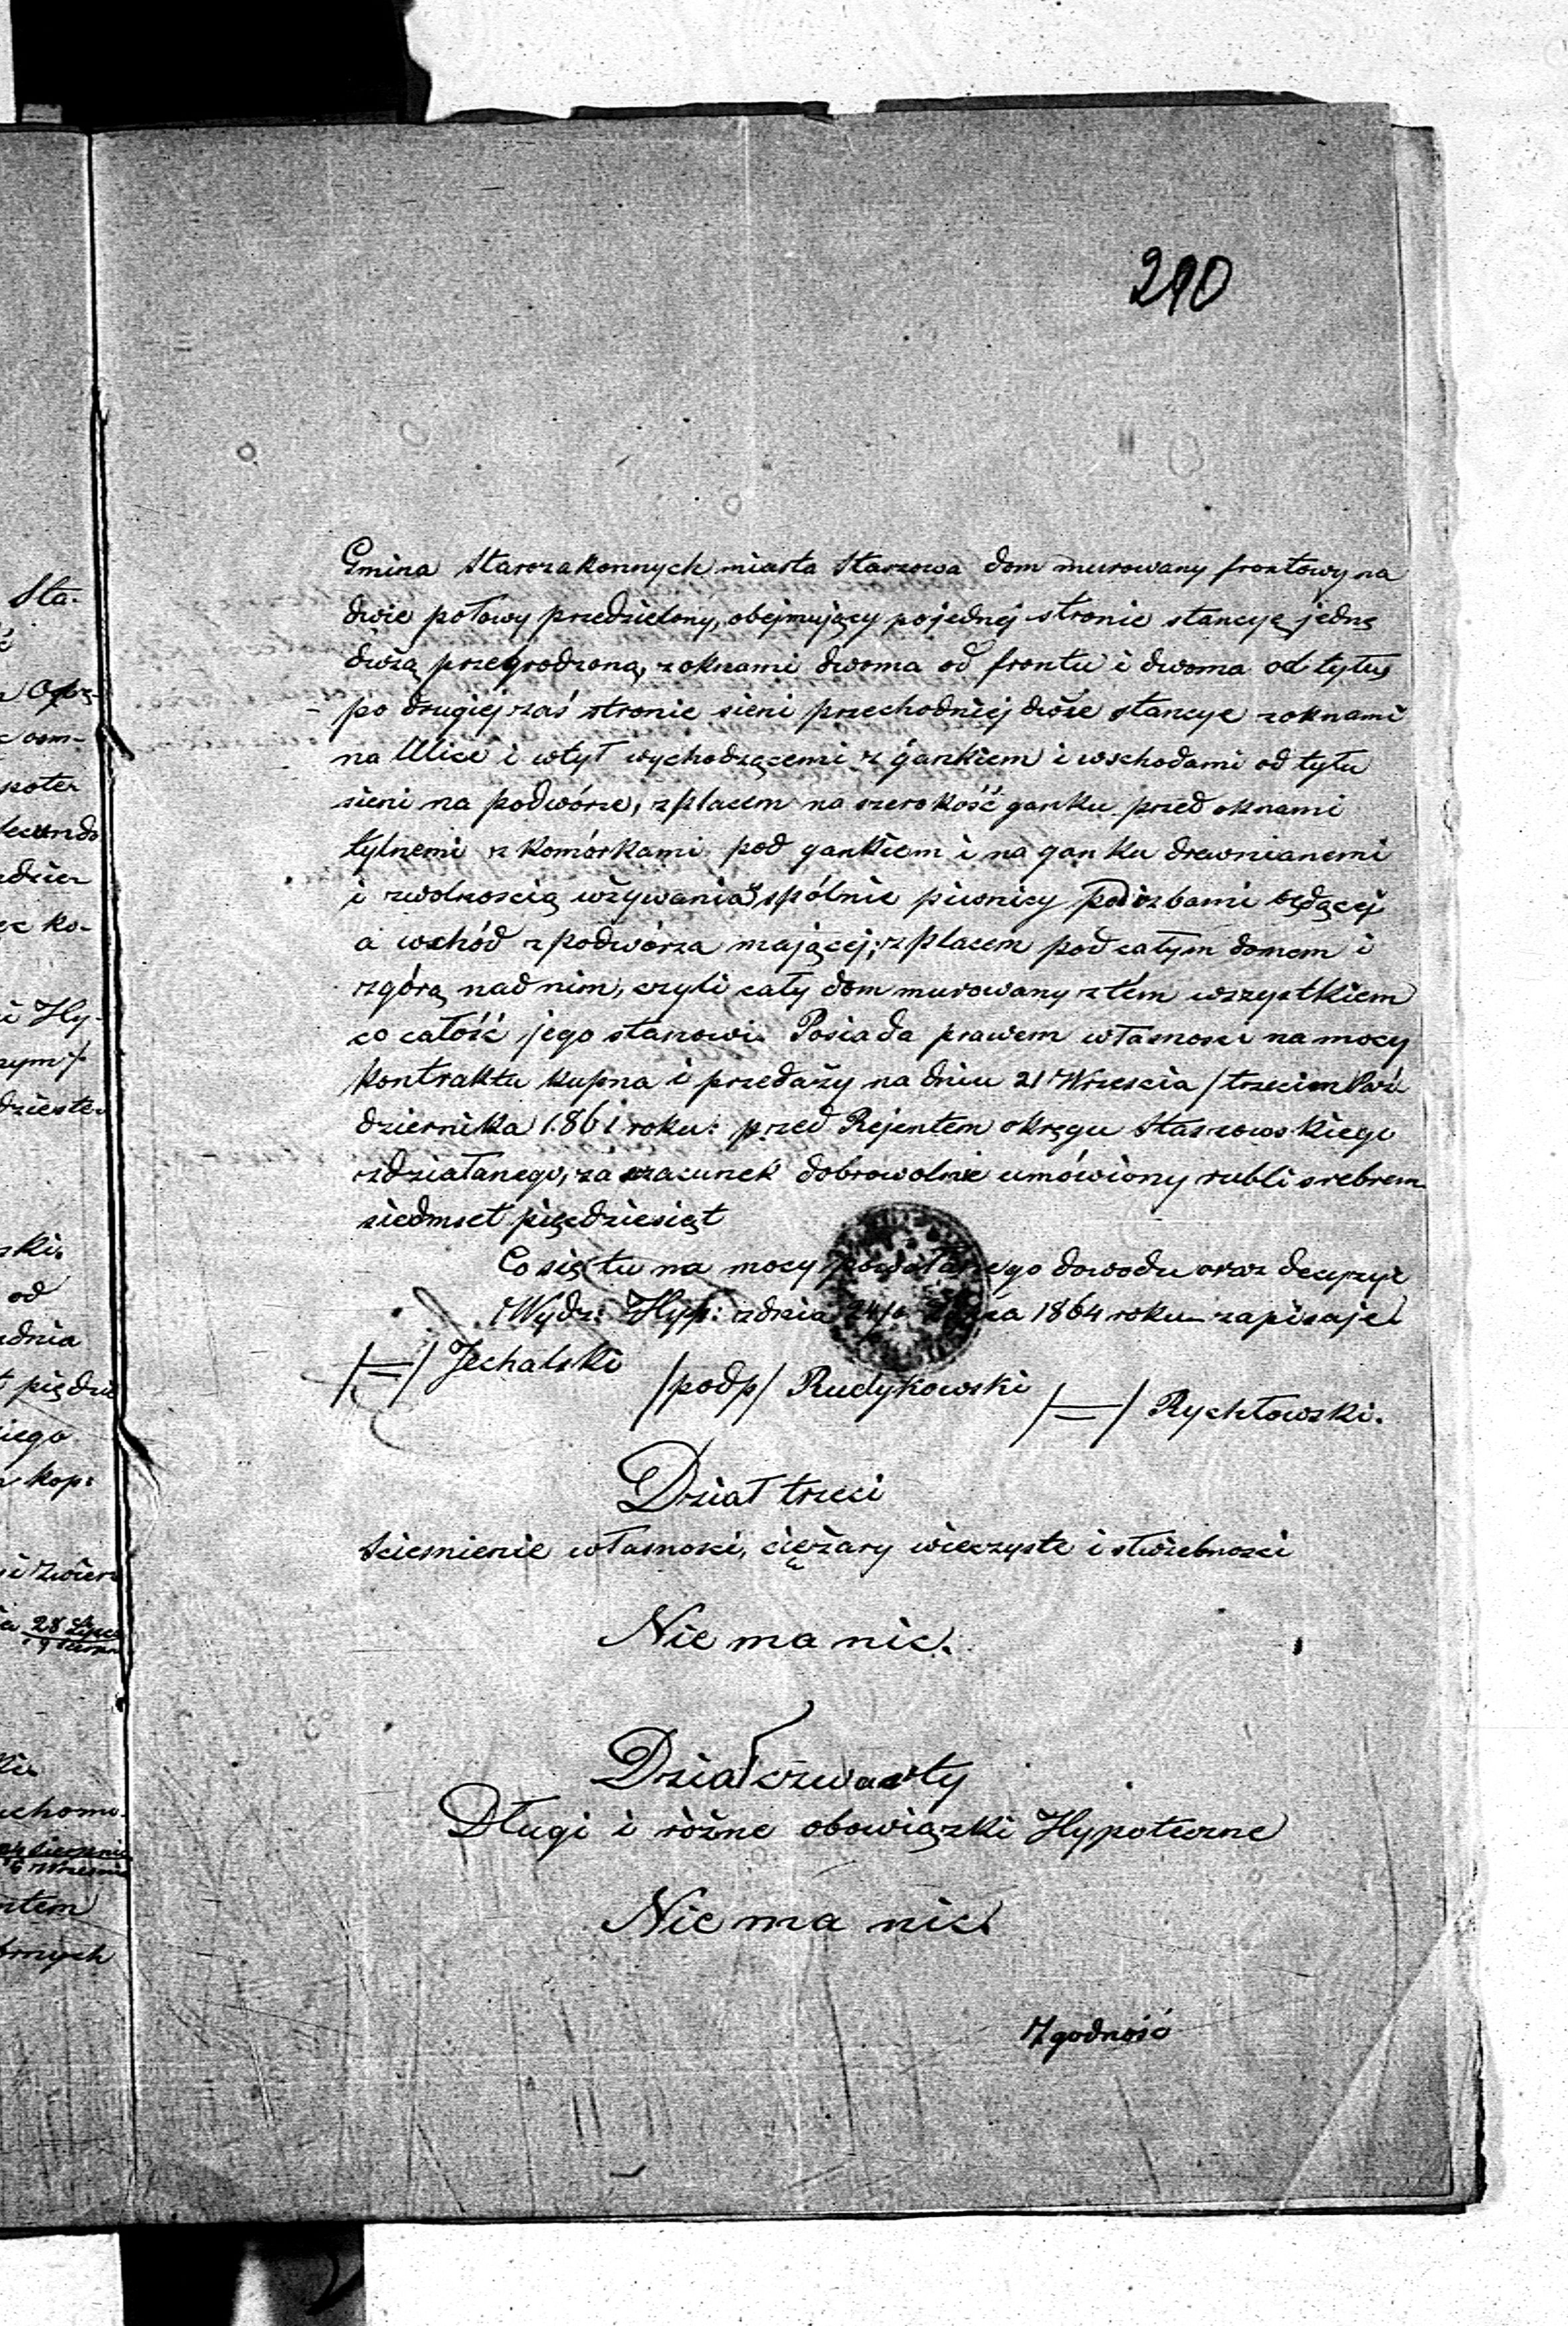 290
Gmina Starozakonnych miasta Staszowa dom murowany frontowy na
dwie połowy przedzielony, obejmujący po jednej stronie stancyę jedną
dużą przegrodzoną, z oknami dwoma od frontu i dwoma od tyłu,
po drugiej zaś stronie sieni przechodniej dwie stancye z oknami
na Ulice i w tył wychodzącemi z gankiem i wschodami od tyłu
sieni na podwórze, z placem na szerokość ganku przed oknami
tylnemi z komórkami pod gankiem i na ganku drewnianemi
i z wolnością używania spólnie piwnicy pod izbami będącej
a wchód z podwórza mającej, z placem pod całym domem i
z górą nad nim, czyli cały dom murowany z tém wszystkiem
co całość jego stanowi. Posiada prawem własności na mocy
kontraktu kupna i przedaży na dniu 21 Września /trzecim Paź
dziernika 1861 roku: przed Rejentem okręgu Staszowskiego
zdziałanego, za szacunek dobrowolnie umówiony rubli srebrem
siedmset pięćdziesiąt
Co się tu na mocy powołanego dowodu oraz decyzyi
Wydz: Hyp: z dnia 1864 roku zapisuje
/=/ Jechalski /podp/ Rudykowski /=/ Rychłowski.
Dział trzeci
Ściesnienie własności, ciężary wieczyste i służebności
Nie ma nic.
Dział czwarty
Długi i różne obowiązki Hypoteczne
Nie ma nic.
Zgodność